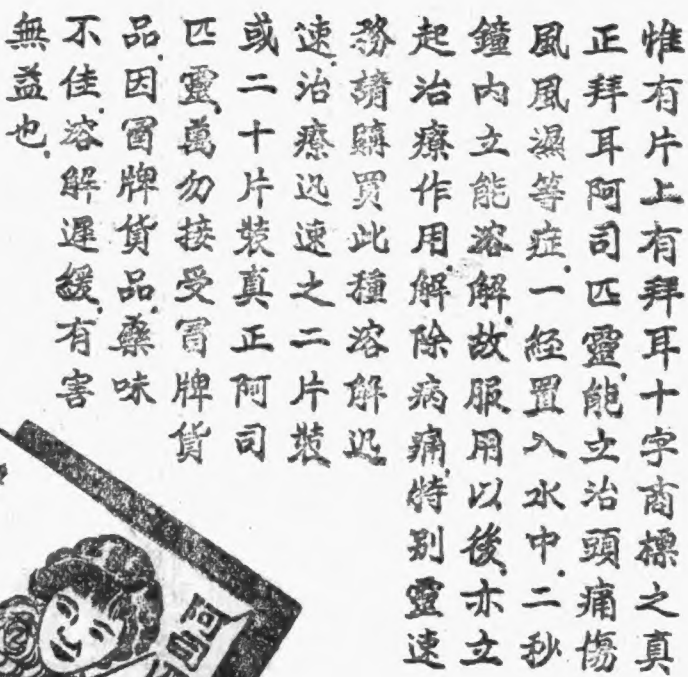 惟有片上有拜耳十字商標之真
正拜耳阿司匹靈,能立治頭痛傷
風風濕等症.一經置入水中.二秒
鐘內立能溶解.故服用以後,亦立
起治療作用.解除病痛,特別靈速
務請購買此種溶解迅
速.治療迅速之二片裝
或二十片裝真正阿司
匹靈.萬勿接受冒牌貨
品.因冒牌貨品.藥味
不佳.溶解遲緩.有害
無益也.
阿司